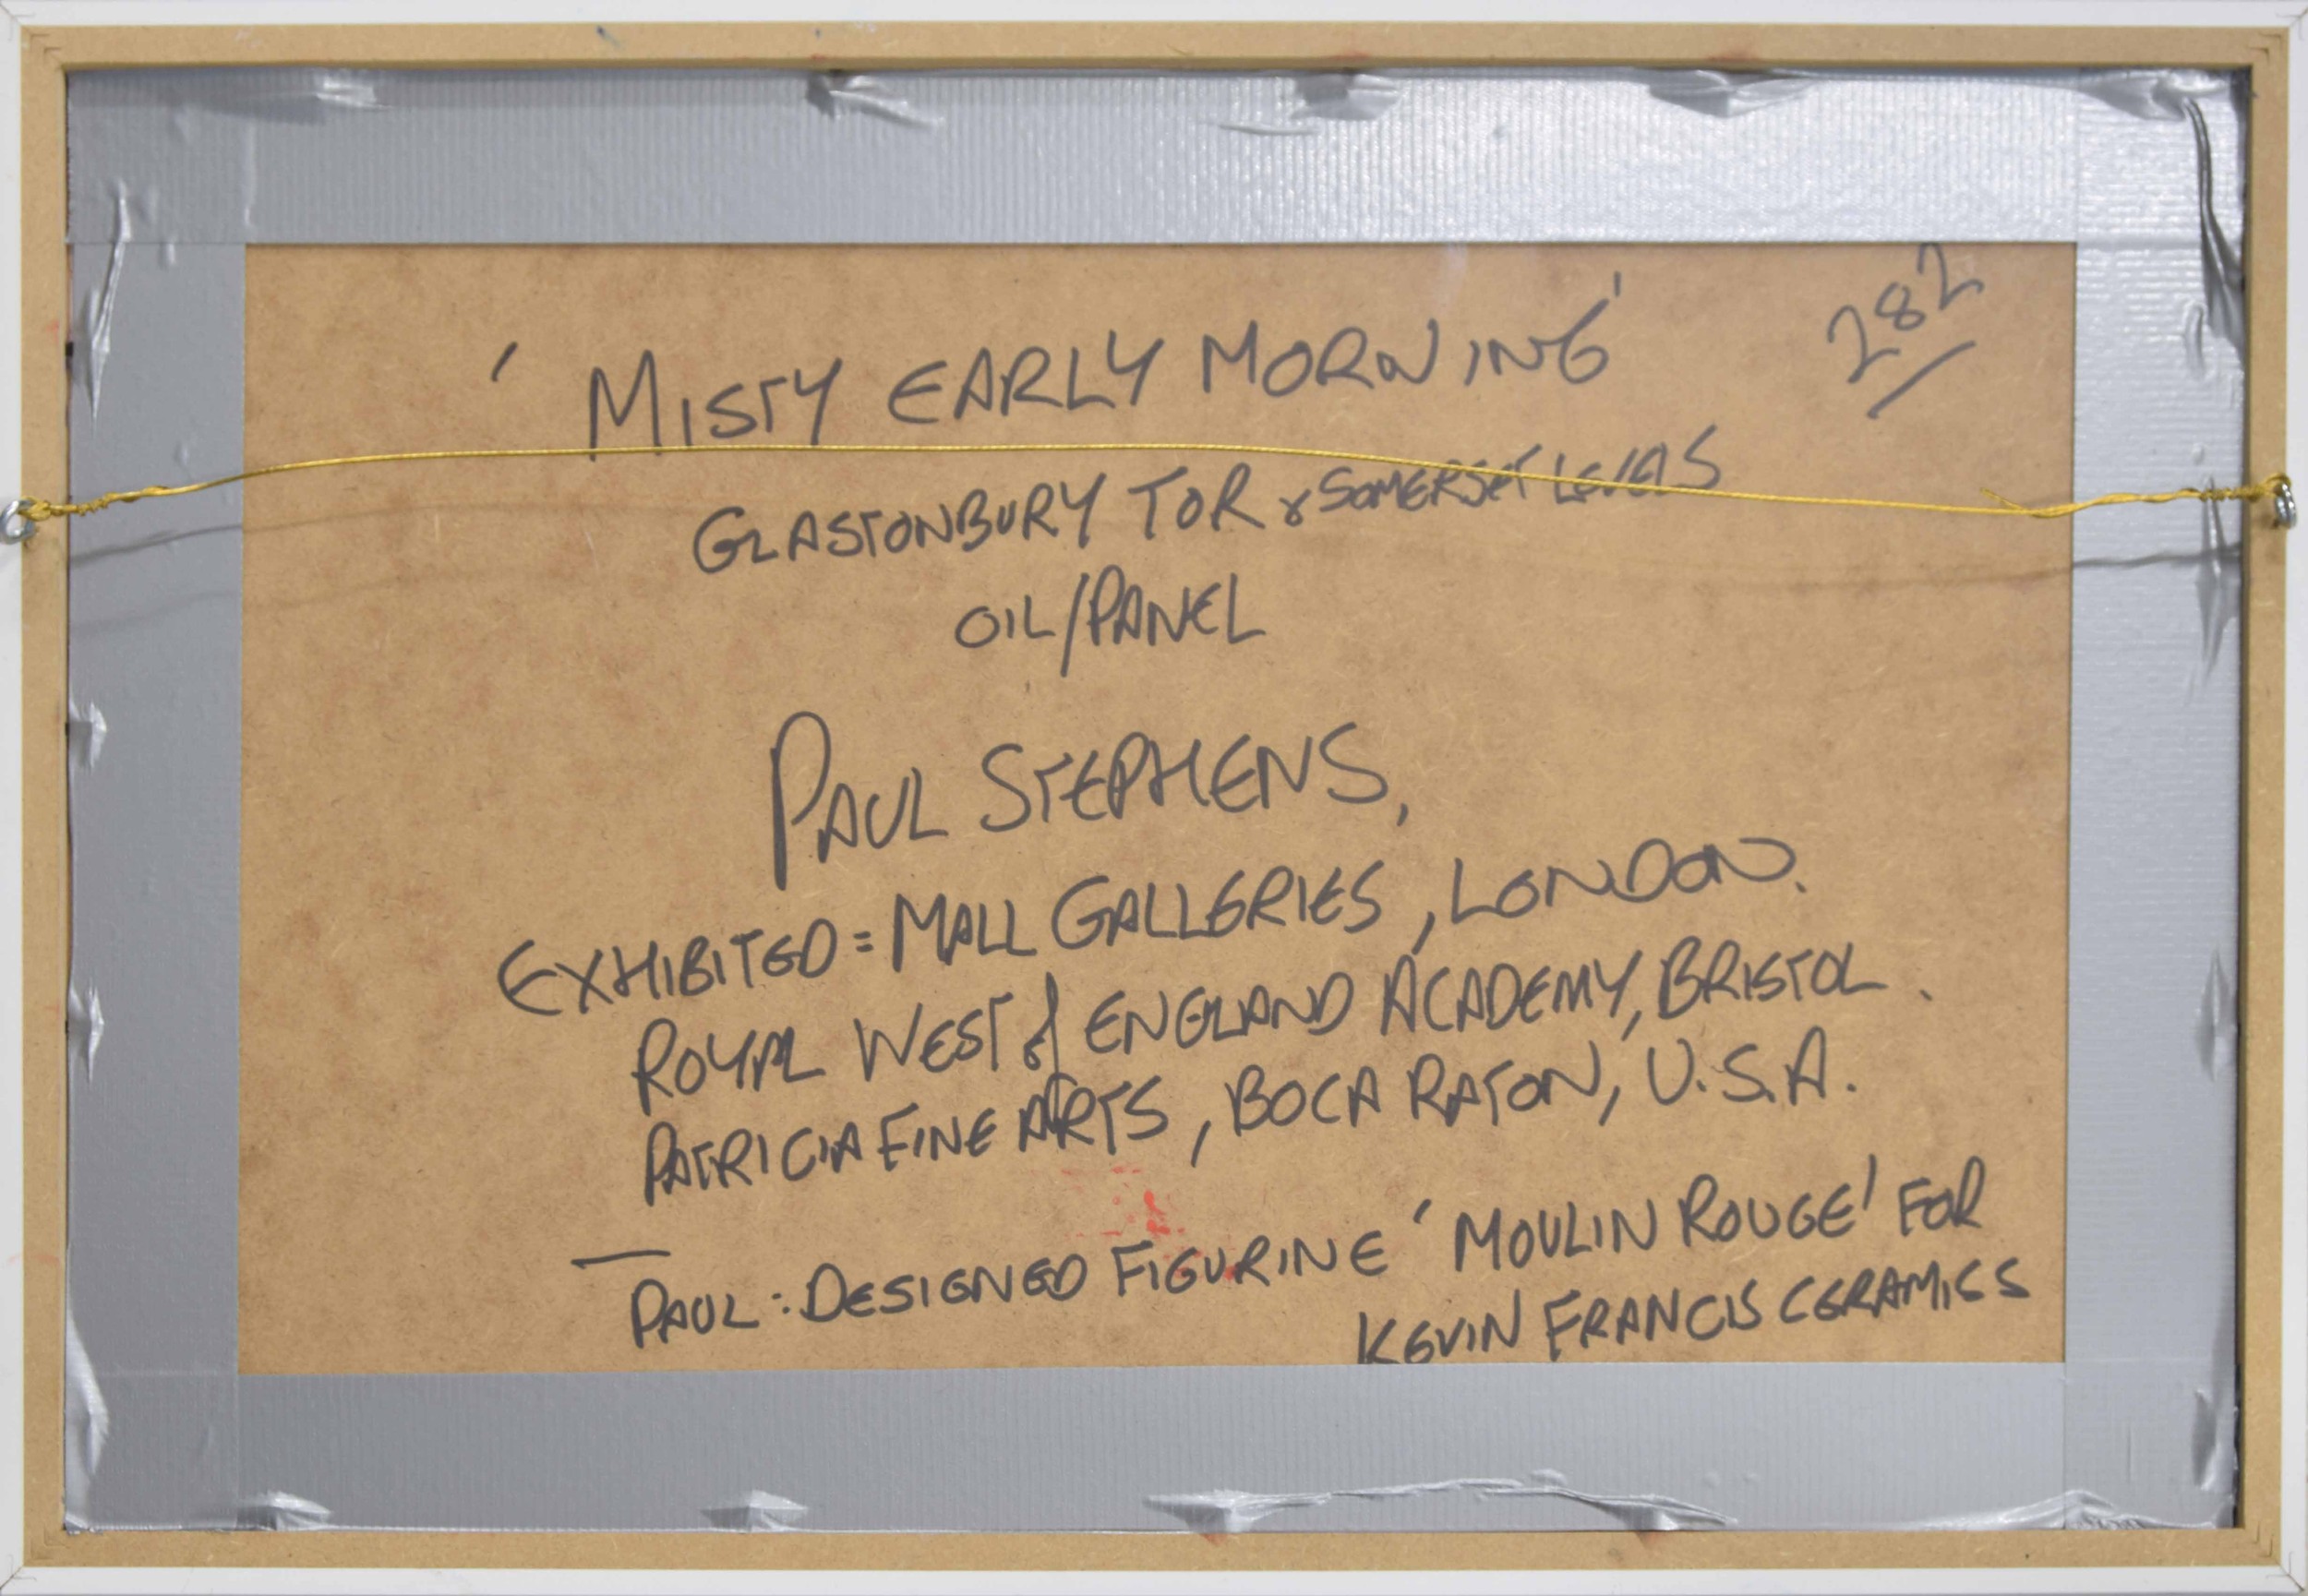 282
'MISTY EARLY MORNING'
GLASTONBURY TOR & SOMERSET LEVELS
OIL/PANEL
PAUL STEPHENS,
EXHIBITED = MALL GALLERIES, LONDON.
ROYAL WEST of ENGLAND ACADEMY, BRISTOL.
PATRICIA FINE ARTS, BOCA RATON, U.S.A.
PAUL: DESIGNED FIGURINE 'MOULIN ROUGE' FOR
KEVIN FRANCIS CERAMICS